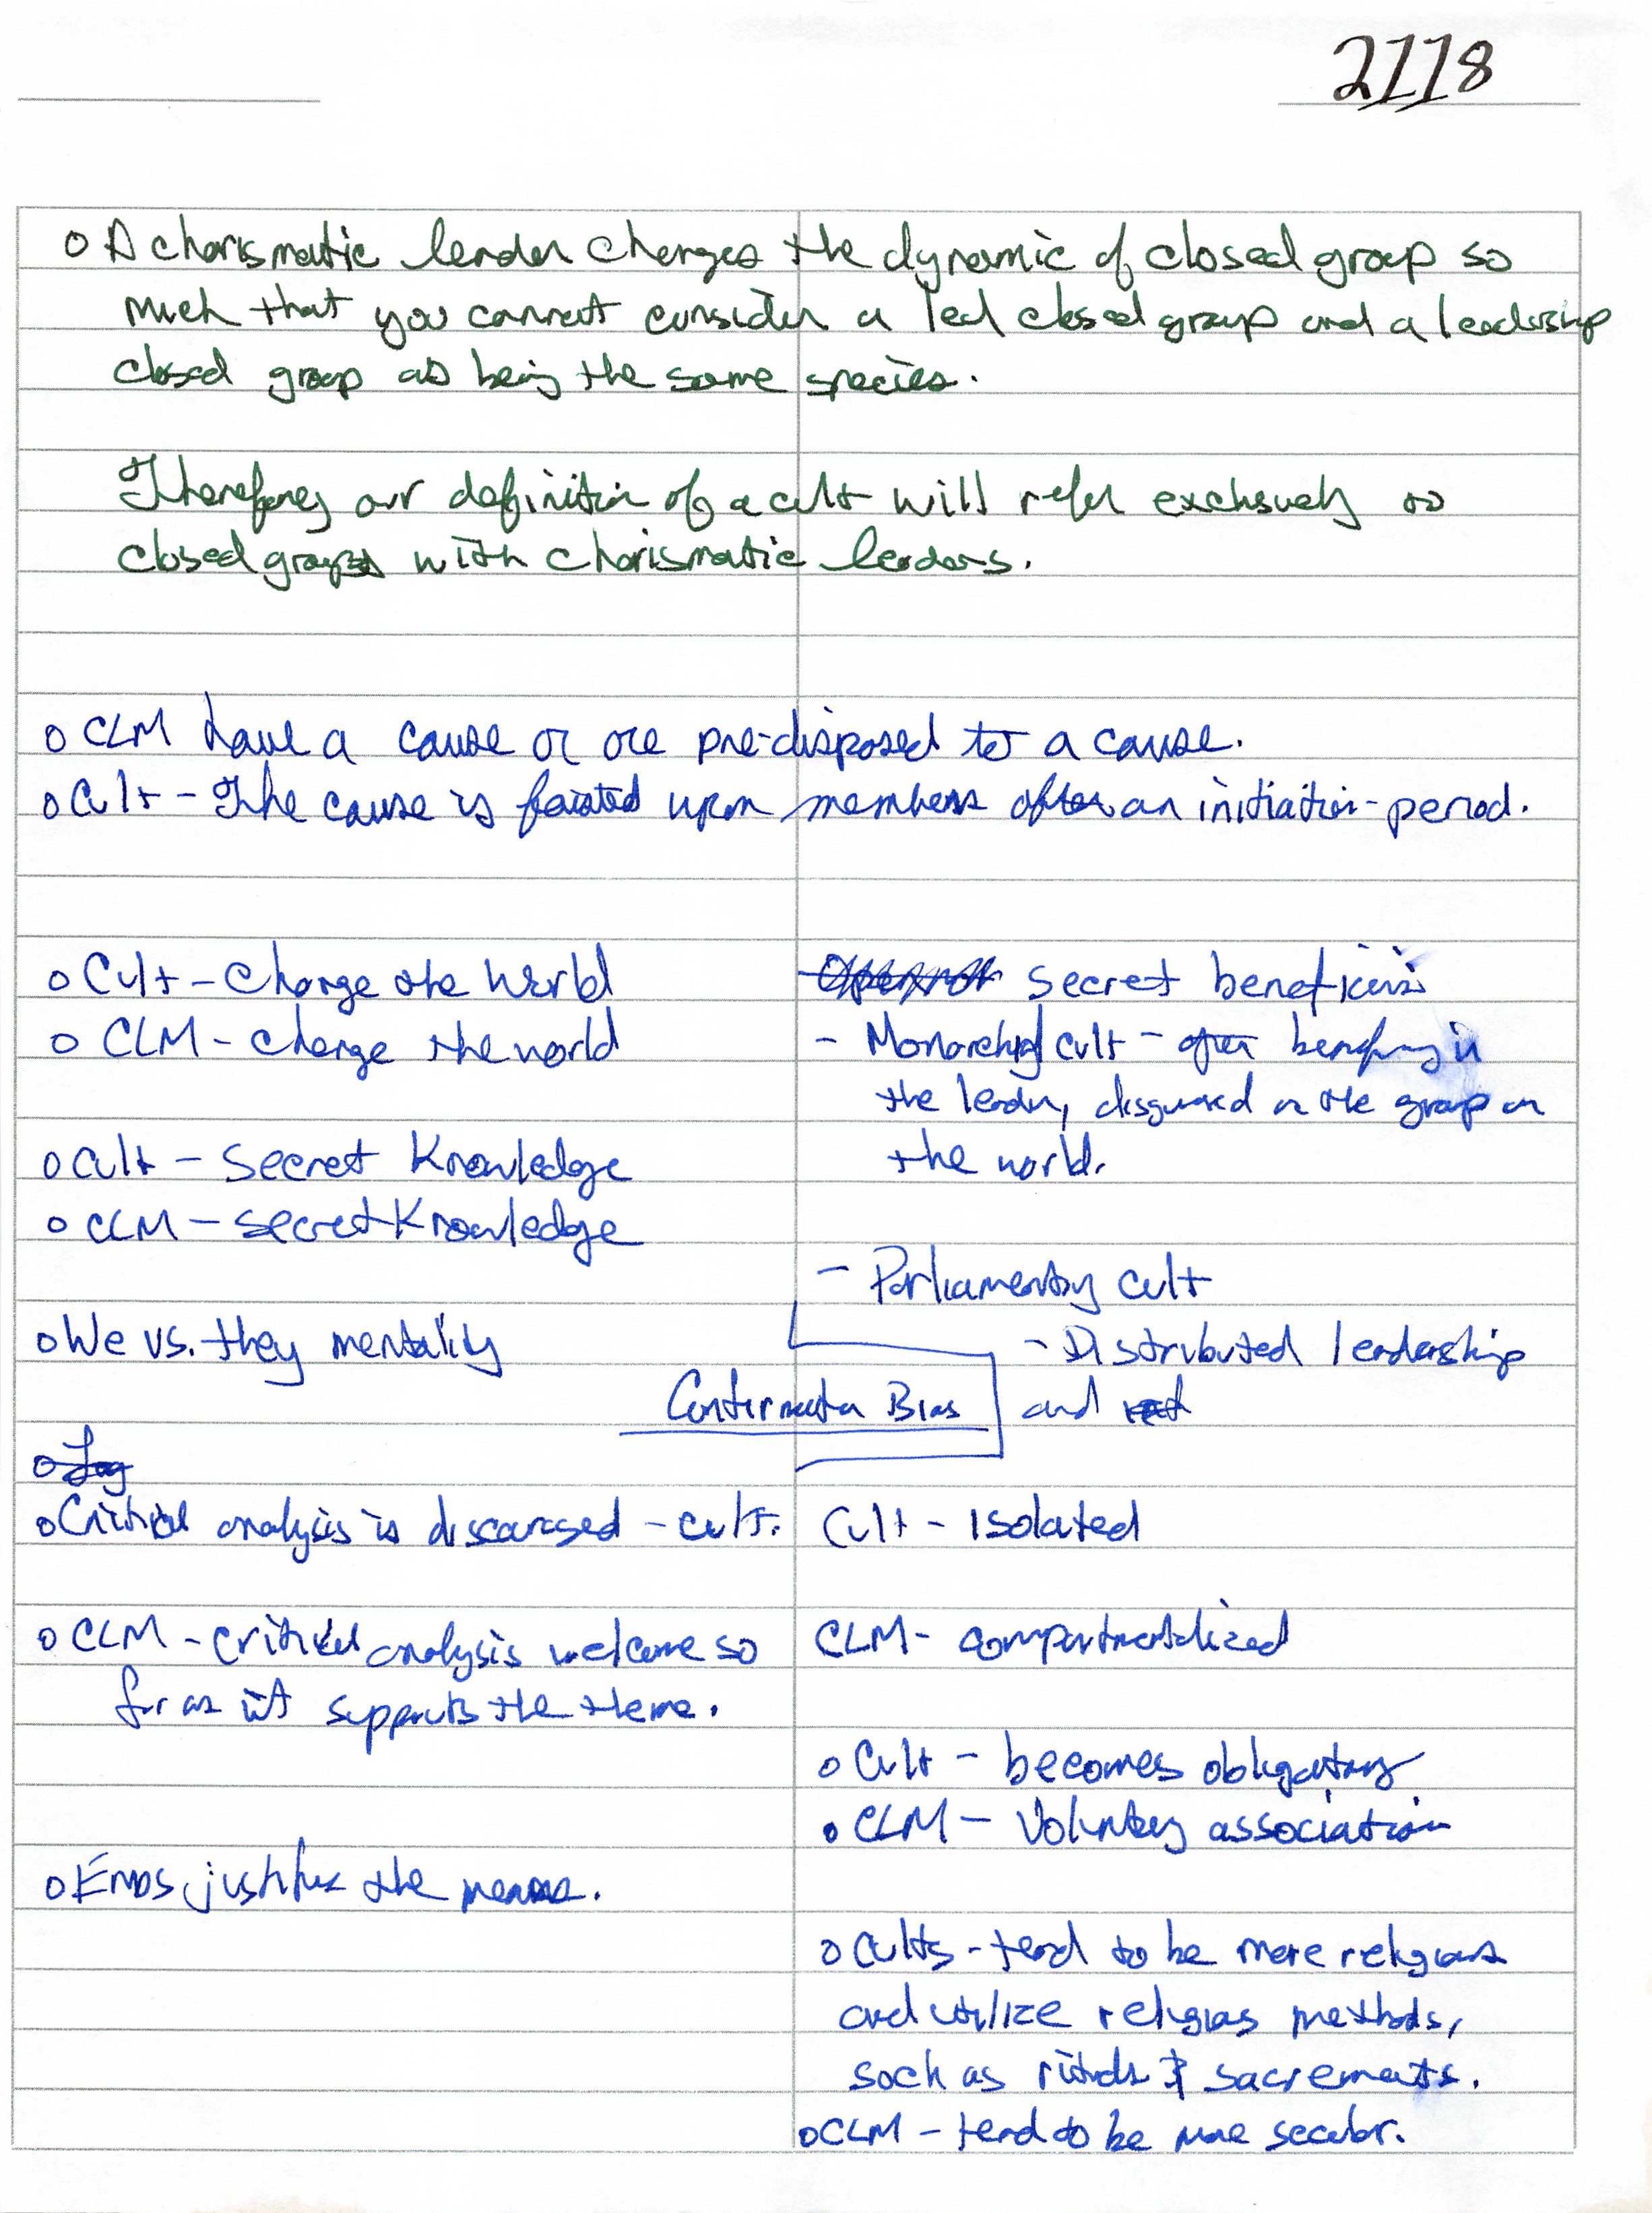 2118
o A charismatic leader changes the dynamic of closed group so
much that you cannot consider a led closed group and a leadership
closed group as being the same species.
Therefore, our definition of a cult will refer exclusively to
closed groups with charismatic leaders.
o CLM have a cause or are pre-disposed to a cause.
o Cult - The cause is foisted upon members after an initiation-period.
o Cult - Change the World
o CLM - change the world
o Cult - Secret Knowledge
o CLM - secret Knowledge
o We vs. they mentality
Confirmation Bias
o Critical analysis is discouraged - cult.
o CLM - critical analysis welcome so
far as it supports the theme.
o Ends justifies the means.
secret
- Monarchy cult - often benefiting is
the leader, disguised as the group or
the world.
- Parliamentary cult
- Distributed leadership
and
Cult - Isolated
CLM - compartmentalized
o Cult - becomes obligatory
o CLM - Voluntary association
o Cults - tend to be more religious
and utilize religious methods,
such as rituals & sacrements.
o CLM - tend to be more secular.